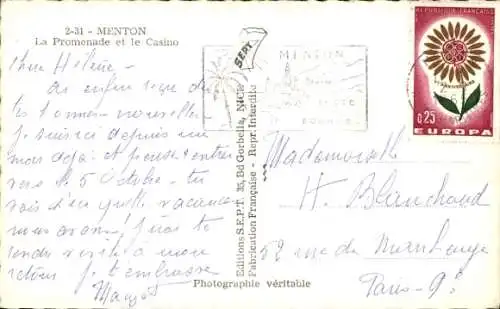 2-31 - MENTON
La Promenade et le Casino
Chère Hélène
as enfin reçu de
tes bonnes nouvelles
je suis ici depuis un
mois déjà et pense rentrer
vers le 5 Octobre. tu
vois bien quelles vacances
nous avons! J'irai te
rendre visite à mon
retour je t'embrasse
Editions S.E.P.T. 35, Bd Gorbella, NICE
Fabrication Française - Repr. Interdite
SEPT
MENTON
REPUBLIQUE FRANÇAISE
0,25
EUROPA
Mademoiselle
H. Blanchaud
62 rue de
Paris-9e
Photographie véritable